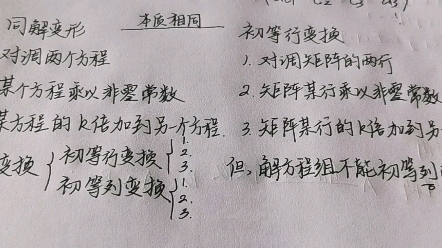 同解变形 本质相同 初等行变换
对调两个方程 1. 对调矩阵的两行
某个方程乘以非零常数 2. 矩阵某行乘以非零常数
某方程的k倍加到另一个方程. 3. 矩阵某行的k倍加到另
变换 { 初等行变换 { 1. 2. 3.
初等列变换 { 1. 2. 3.
但, 解方程组不能初等列